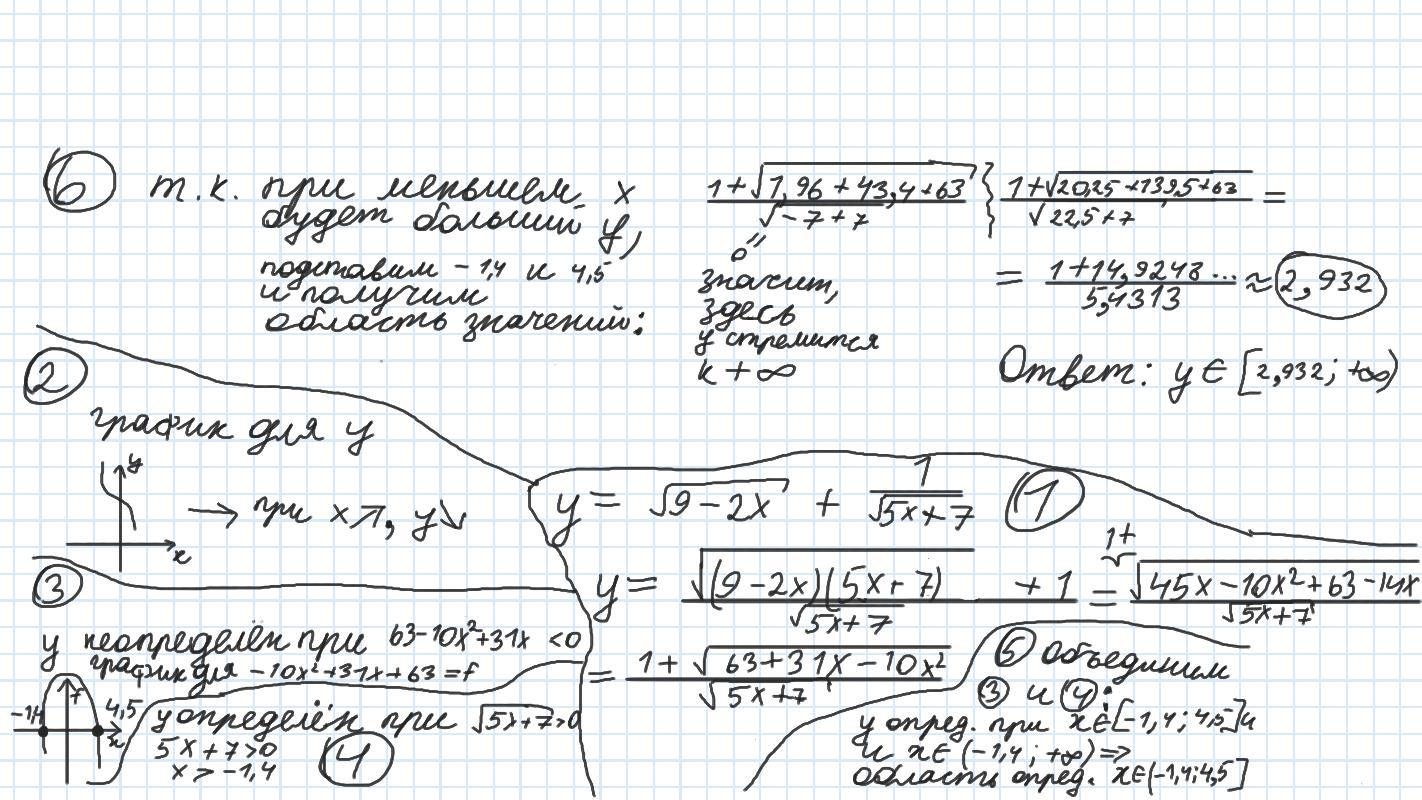 6 т.к. при меньшем x
будет больший y,
подставим -1,4 и 4,5
и получим
область значений:
1+√1,96+43,4+63 / √-7+7
0
значит,
здесь
y стремится
к +∞
1+√20,25+139,5+63 / √22,5+7 =
= 1+14,9248... / 5,4313 ≈ 2,932
Ответ: y ∈ [2,932; +∞)
2
график для y
y
x
→ при x↗, y↘
3
y неопределён при 63-10x²+31x <0
график для -10x²+31x+63 = f
f
-1,4
4,5
x
y определён при √5x+7>0
5x+7>0
x > -1,4
4
y = √9-2x + 1/√5x+7
1
y = √(9-2x)(5x+7) + 1 / √5x+7 = 1+ √45x-10x²+63-14x / √5x+7
= 1+ √63+31x-10x² / √5x+7
5 объединим
3 и 4:
y опред. при x∈[-1,4; 4,5] и
и x∈(-1,4; +∞) =>
область опред. x∈(-1,4; 4,5]